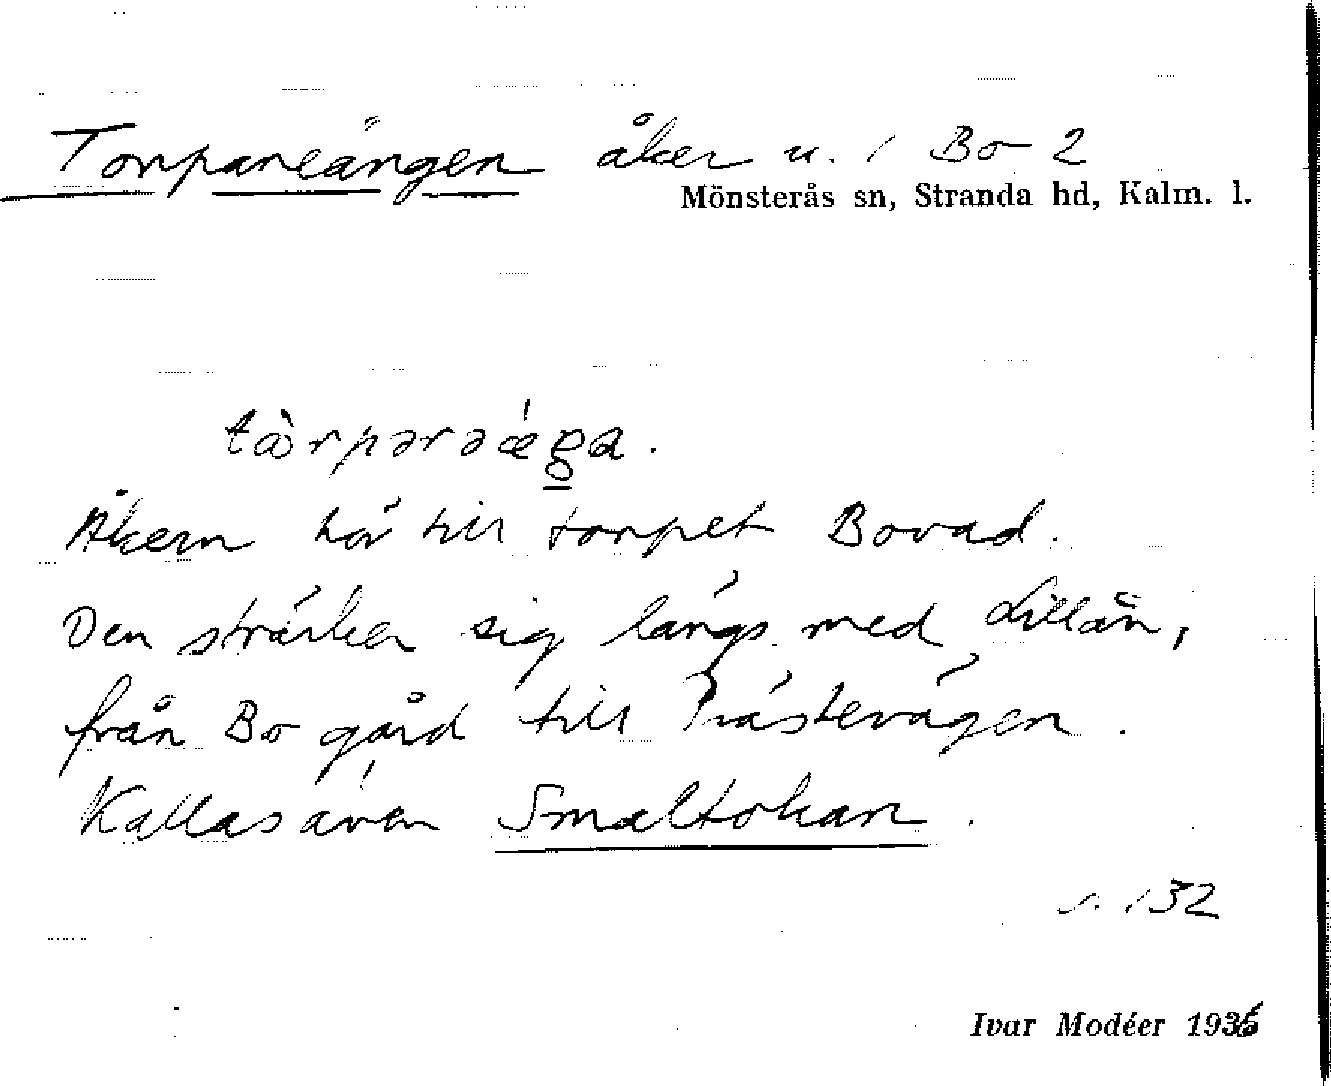 Torpareängen åker u. 1 Bo 2
Mönsterås sn, Stranda hd, Kalm. l.
Åkern hör till torpet Bovad.
Den sträcker sig längs med Lillån,
från Bo gård till Prästevägen.
Kallas även Smaltokan.
s. 132
Ivar Modéer 1936